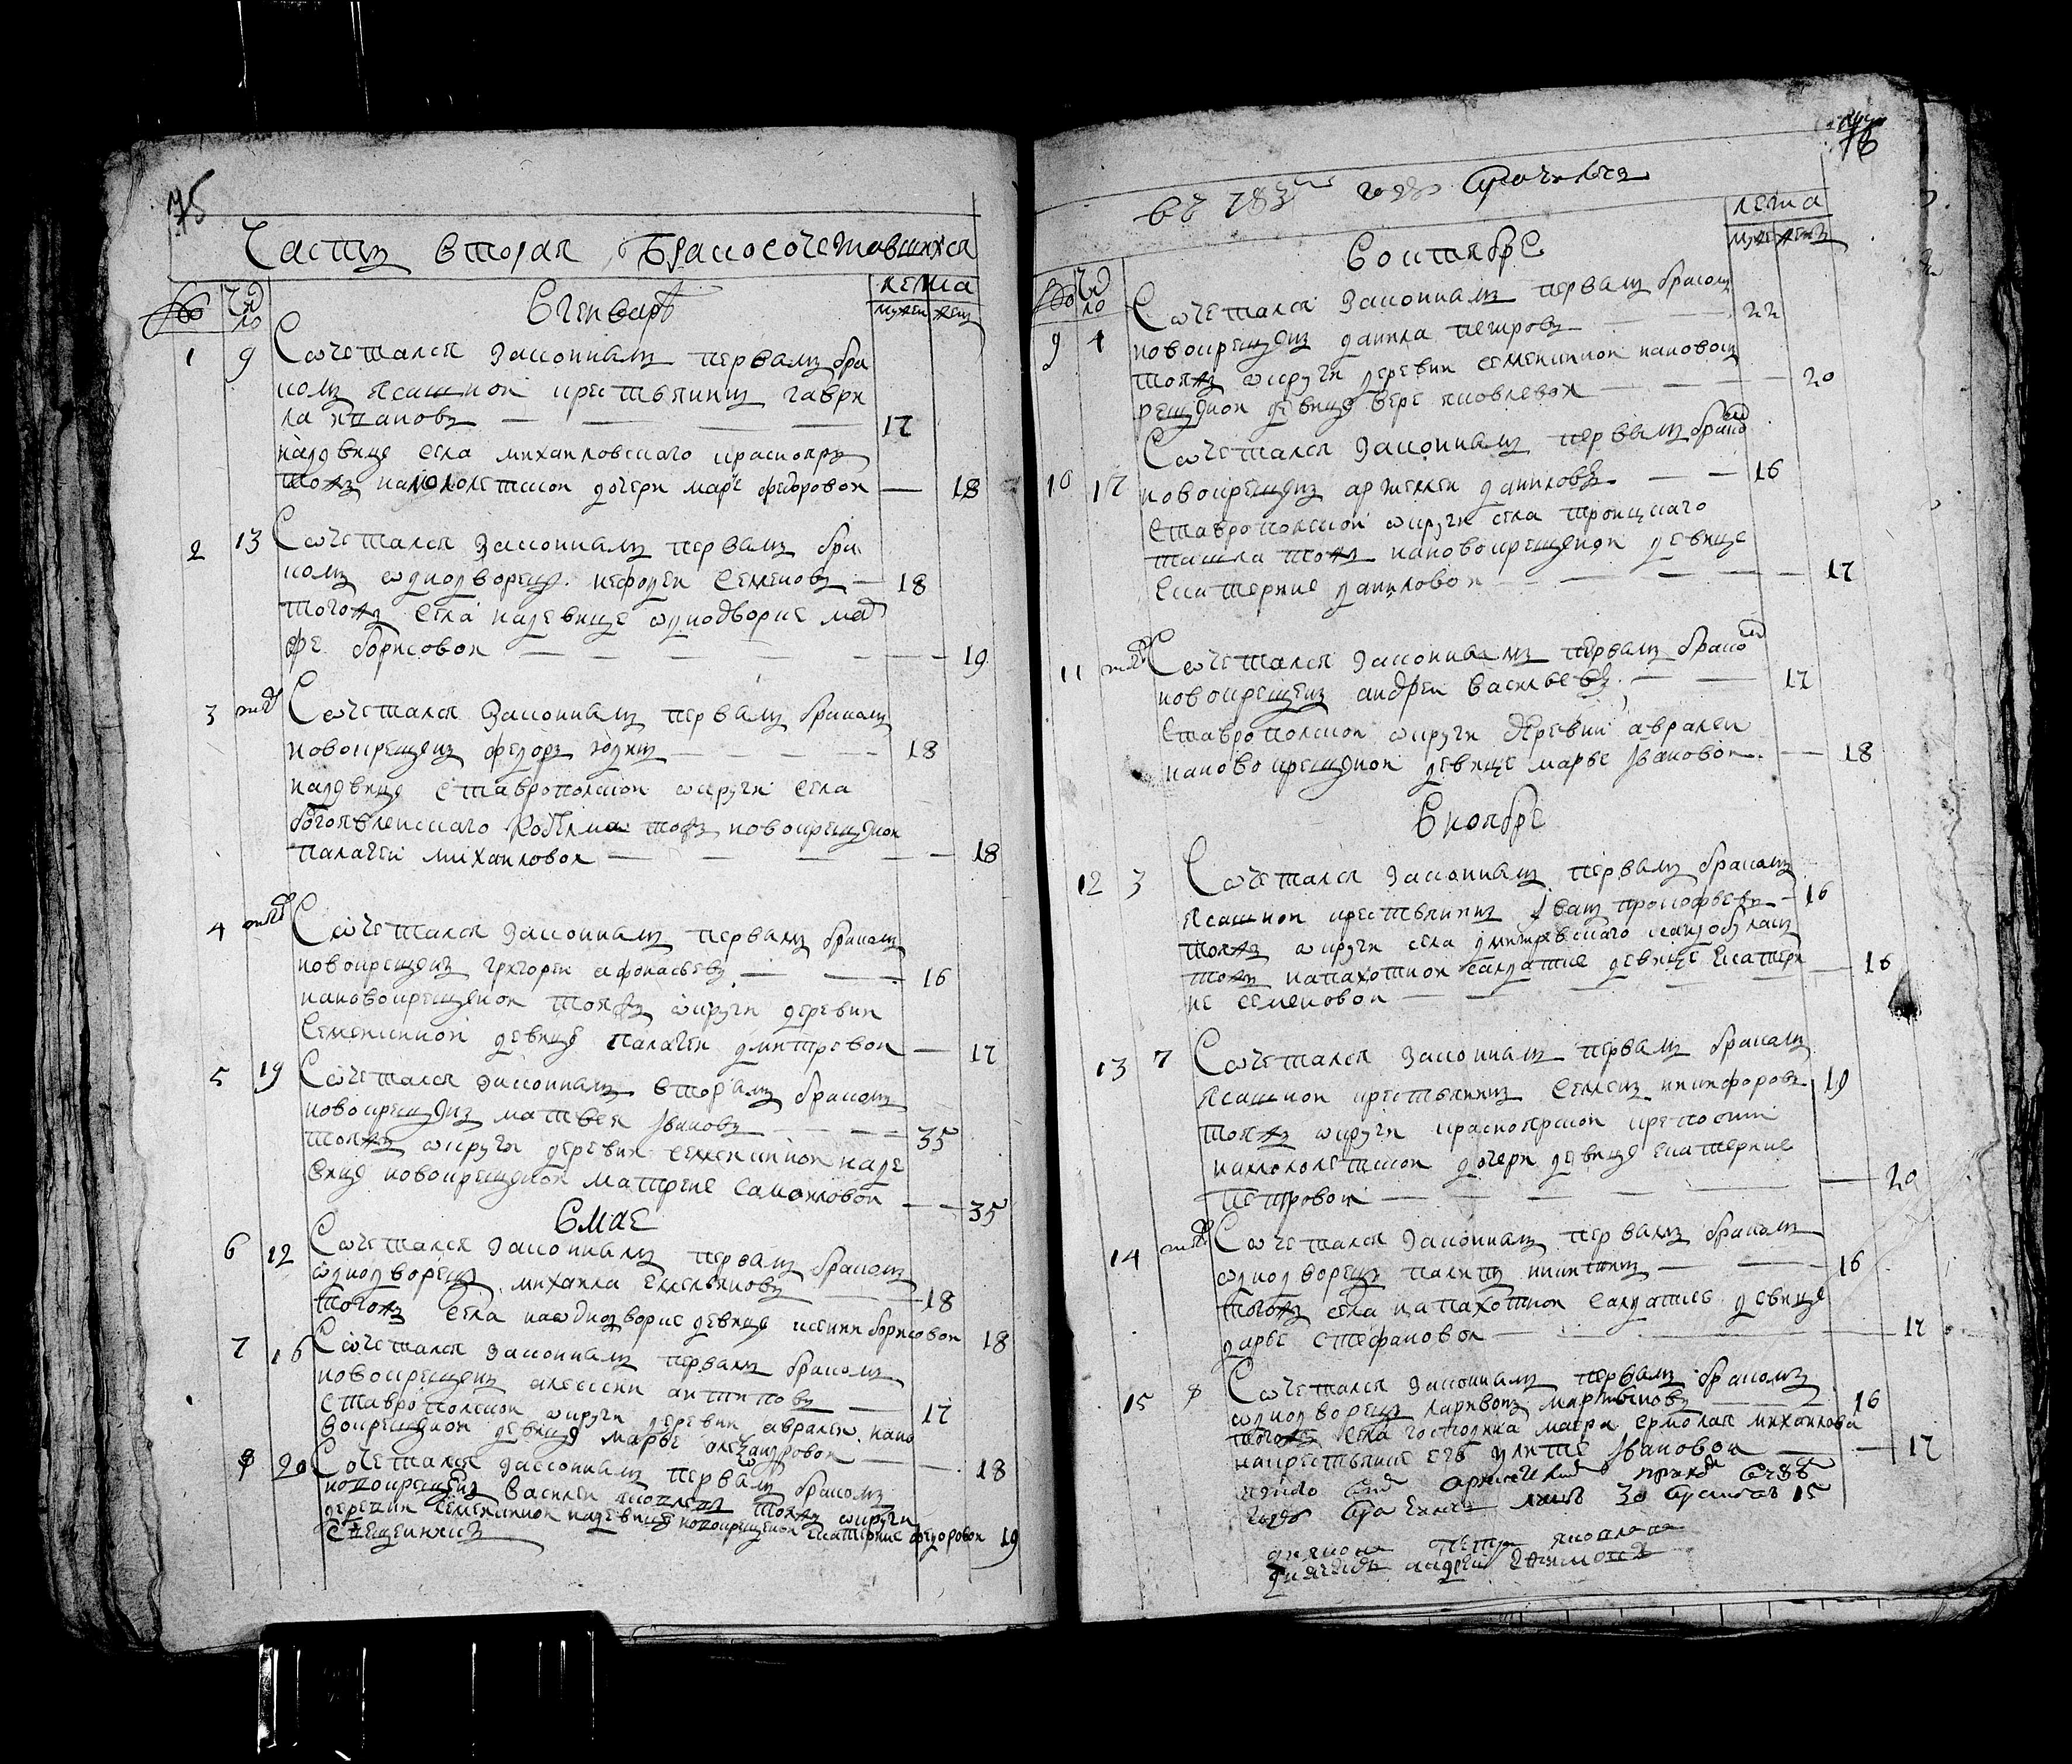 75
Часть вторая Бракосочетавшихся
число
лета
мужей жен
Вгенваре
1 9 Сочетался законнымъ первымъ бра
комъ ясашной крестьянинъ гаври
ла 17
надевице села михайловскаго краснояръ
тожъ намололетской дочери марье федоровой — 18
2 13 Сочетался законнымъ первымъ бра
комъ однодворецъ нефодей семеновъ — 18
тогожъ села надевице однодворке мар
фе борисовой — 19
3 Сочетался законнымъ первымъ бракомъ
новокрещенъ федоръ юдинъ — 18
надевице ставропольской округи села
богоявленскаго тожъ новокрещеной
палагеи михаиловой — 18
4 Сочетался законнымъ первымъ бракомъ
новокрещенъ григорей афонасьевъ — 16
нановокрещеной тояжъ округи деревни
Семенкиной девице палагеи дмитревой — 17
5 19 Сочетался законнымъ вторымъ бракомъ
новокрещенъ матвей ивановъ — 35
тояжъ округи деревни семенкиной наде
вице новокрещеной матрене самоиловой — 35
Вмае
6 12 Сочетался законнымъ первымъ бракомъ
однодворецъ михаила емельяновъ — 18
тогожъ села наоднодворке девице ксении борисовой 18
7 16 Сочетался законнымъ первымъ бракомъ
новокрещенъ алексеи антиповъ — 17
ставропольской округи деревни авралеи нано
вокрещеной девице марье олександровой — 18
8 20 Сочетался законнымъ первымъ бракомъ
новокрещенъ василеи яковлевъ тояжъ округи
деревни семенкиной надевице новокрещеной екатерине федоровой 19
Священникъ
76
783 году
лета
мужей жен
Воктябре
число
9 4 Сочетался законнымъ первымъ бракомъ
новокрещенъ данила петровъ — 22
тояжъ округи деревни семенкиной нановок
рещеной девице вере яковлевой — 20
10 17 Сочетался законнымъ первымъ бракомъ
новокрещенъ артемей даниловъ — 16
Ставропольской округи села троицкаго
ташла тожъ нановокрещеной девице
Екатерине даниловой — 17
11 Сочетался законнымъ первымъ бракомъ
новокрещенъ андреи васильевъ — 17
Ставропольской округи деревни авралеи
нановокрещеной девице марье ивановой — 18
Вноябре
12 3 Сочетался законнымъ первымъ бракомъ
Ясашной крестьянинъ иванъ прокофьевъ — 16
тояжъ округи села дмитревскаго
тожъ напахотной салдатке девице Екатери
не семеновой — 16
13 7 Сочетался законнымъ первымъ бракомъ
Ясашной крестьянинъ семенъ никифоровъ 19
тояжъ округи красноярской крепости
намололетской дочери девице екатерине
петровой — 20
14 Сочетался законнымъ первымъ бракомъ
однодворецъ никитинъ — 16
тогожъ села напахотной салдатке девице
дарье стефановой — 17
15 8 Сочетался законнымъ первымъ бракомъ
однодворецъ ларивонъ мартыновъ — 16
тогожъ села господина ермолая михаилова
накрестьянке ево улите ивановой — 17
15
дияконъ петръ яковлевъ
дьячекъ андрей